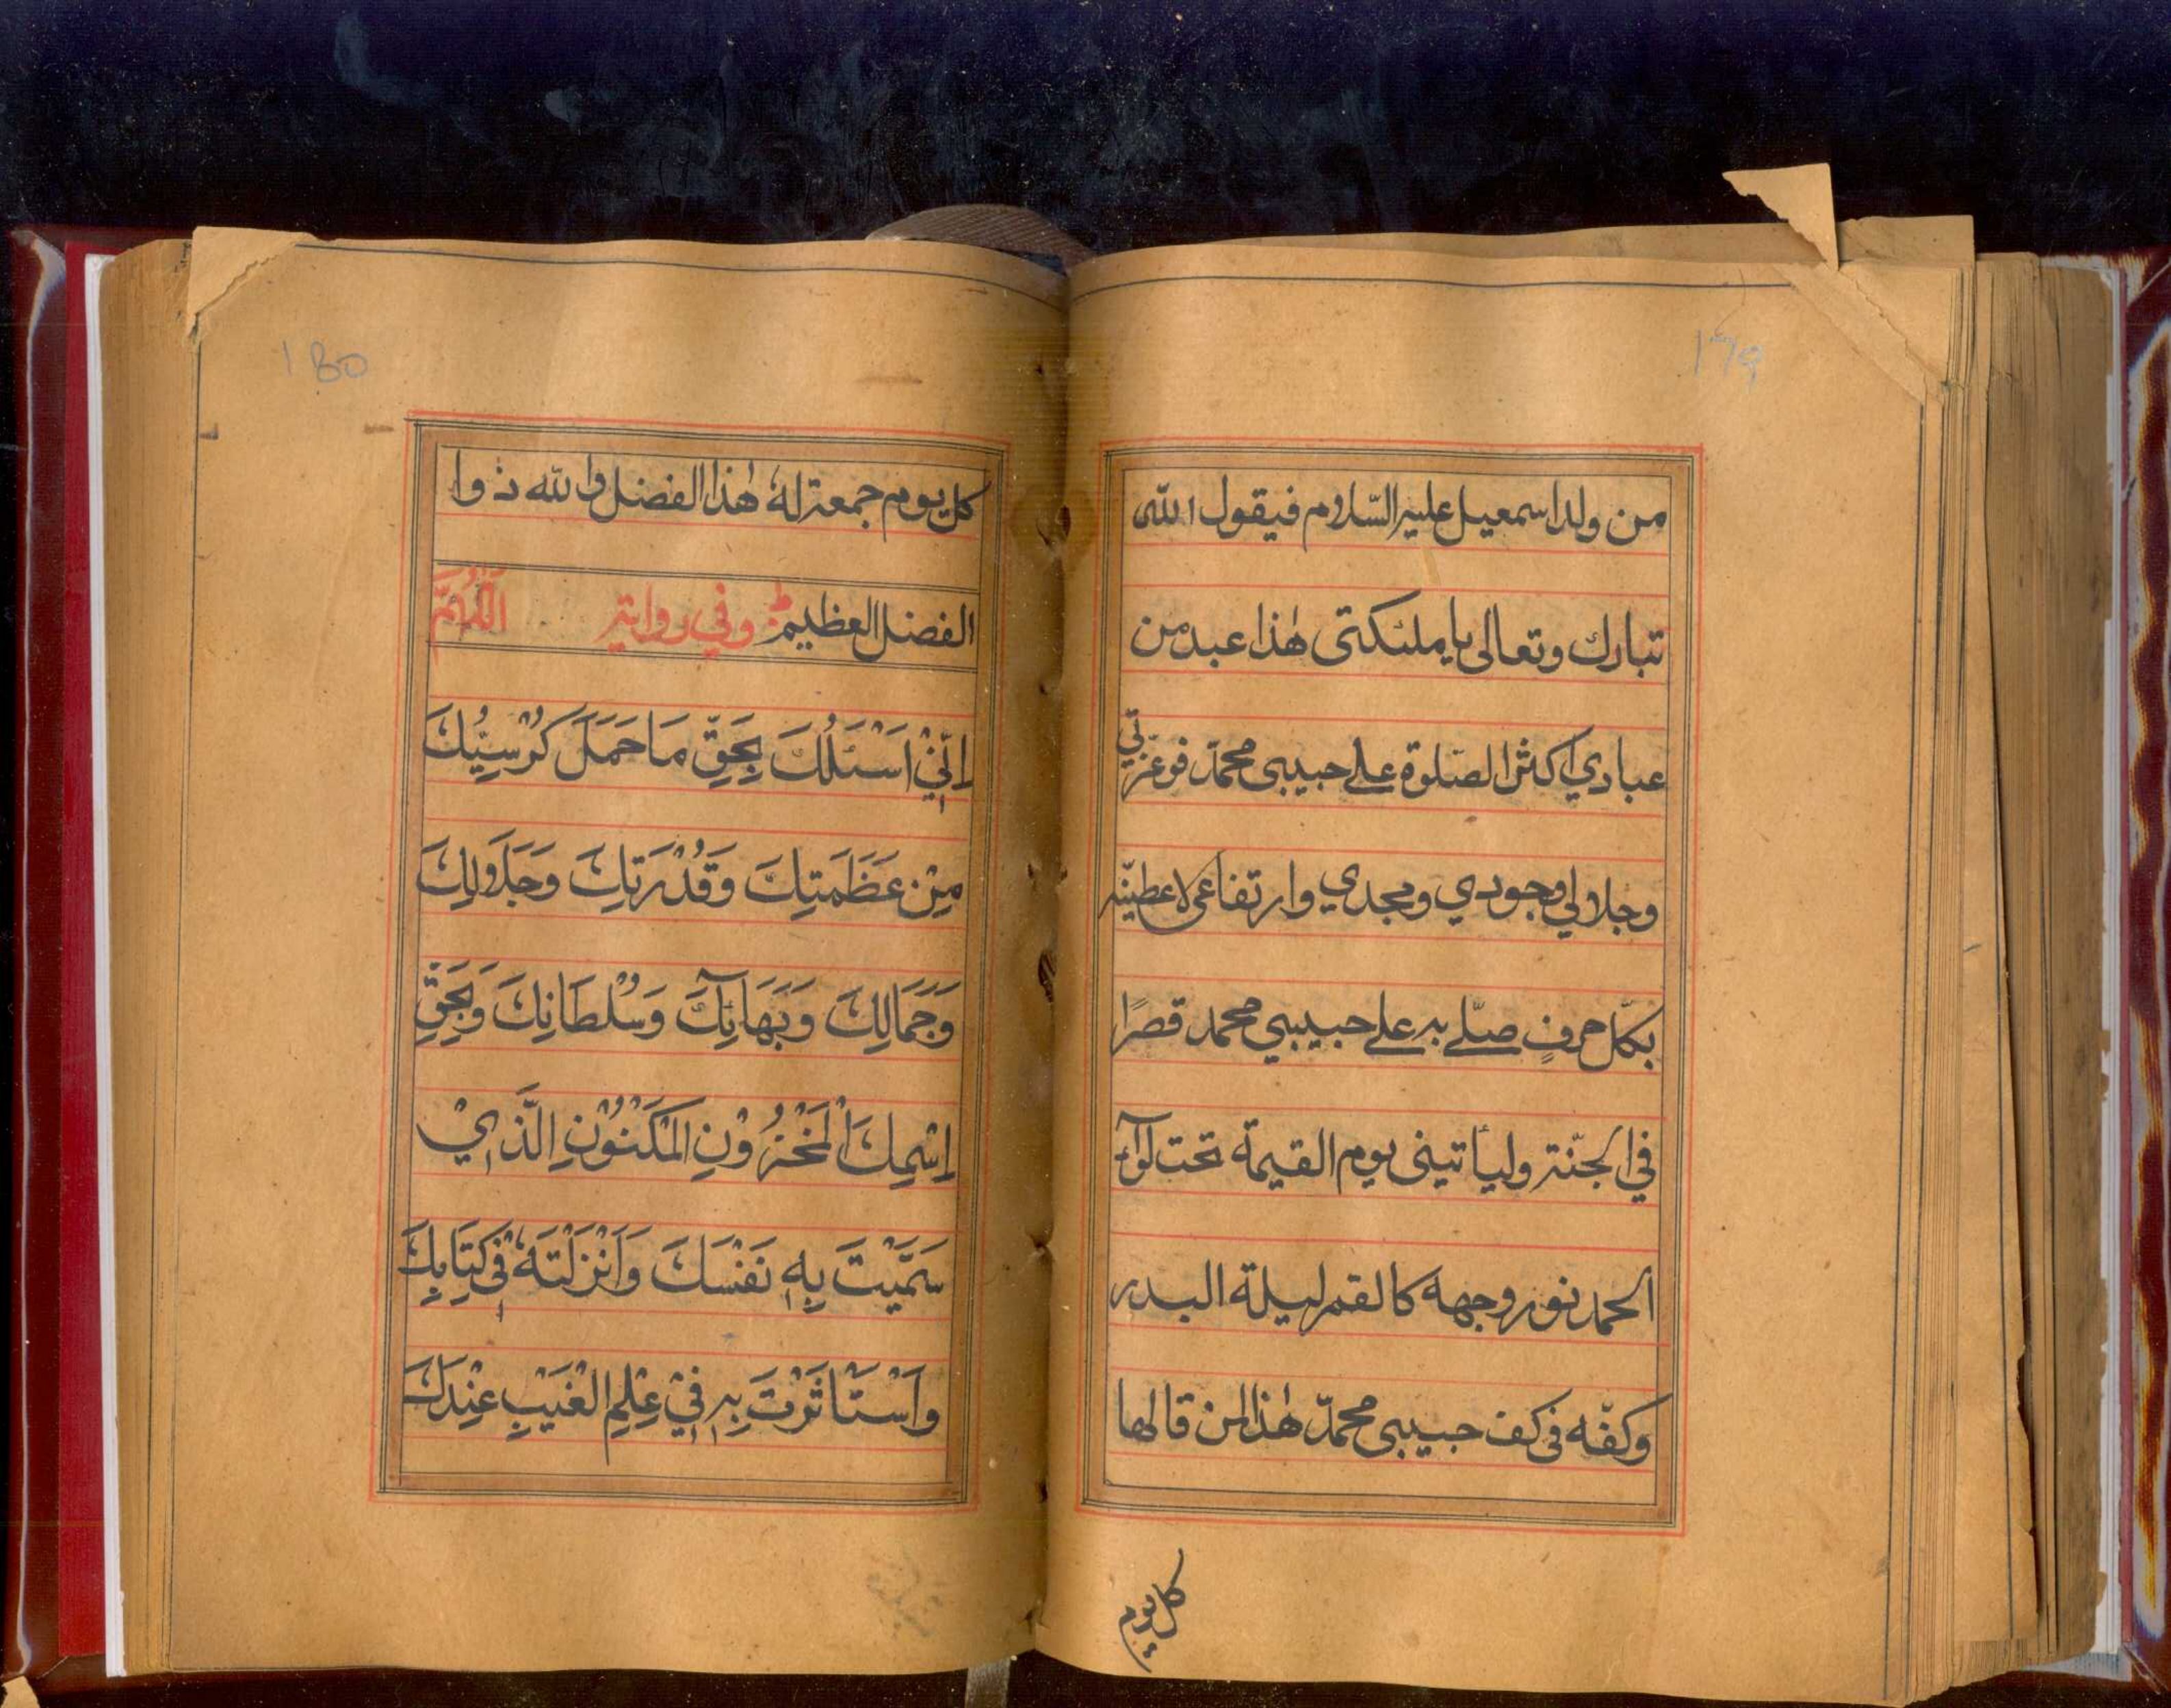 179
من ولد اسمعيل عليه السّلام فيقول الله
تبارك وتعالى يا ملئكتى هٰذا عبد من
عبادي اكثر الصّلوة على حبيبى محمّد فوعزّتي
وجلالي وجودي ومجدي وارتفاعى لاعطينّه
بكلّ حرفٍ صلّى به على حبيبي محمد قصرًا
في الجنّة وليأتينى يوم القيمة تحت لوآء
الحمد نور وجهه كالقمر ليلة البدر
وكفّه فى كف حبيبى محمّد هٰذا لمن قالها
كل يوم
180
كل يوم جمعة لهُ هٰذا الفضل والله ذوا
الفضل العظيم وفي رواية اَللّٰهُمَّ
اِنِّيْ اَسْئَلُكَ بِحَقِّ مَا حَمَلَ كُرْسِيُّكَ
مِنْ عَظَمَتِكَ وَقُدْرَتِكَ وَجَلَالِكَ
وَجَمَالِكَ وَبَهَآئِكَ وَسُلْطَانِكَ وَبِحَقِّ
اِسْمِكَ الْمَخْزُوْنِ الْمَكْنُوْنِ الَّذِيْ
سَمَّيْتَ بِهٖ نَفْسَكَ وَاَنْزَلْتَهٗ فِيْ كِتَابِكَ
وَاسْتَاْثَرْتَ بِهٖ فِيْ عِلْمِ الْغَيْبِ عِنْدَكَ